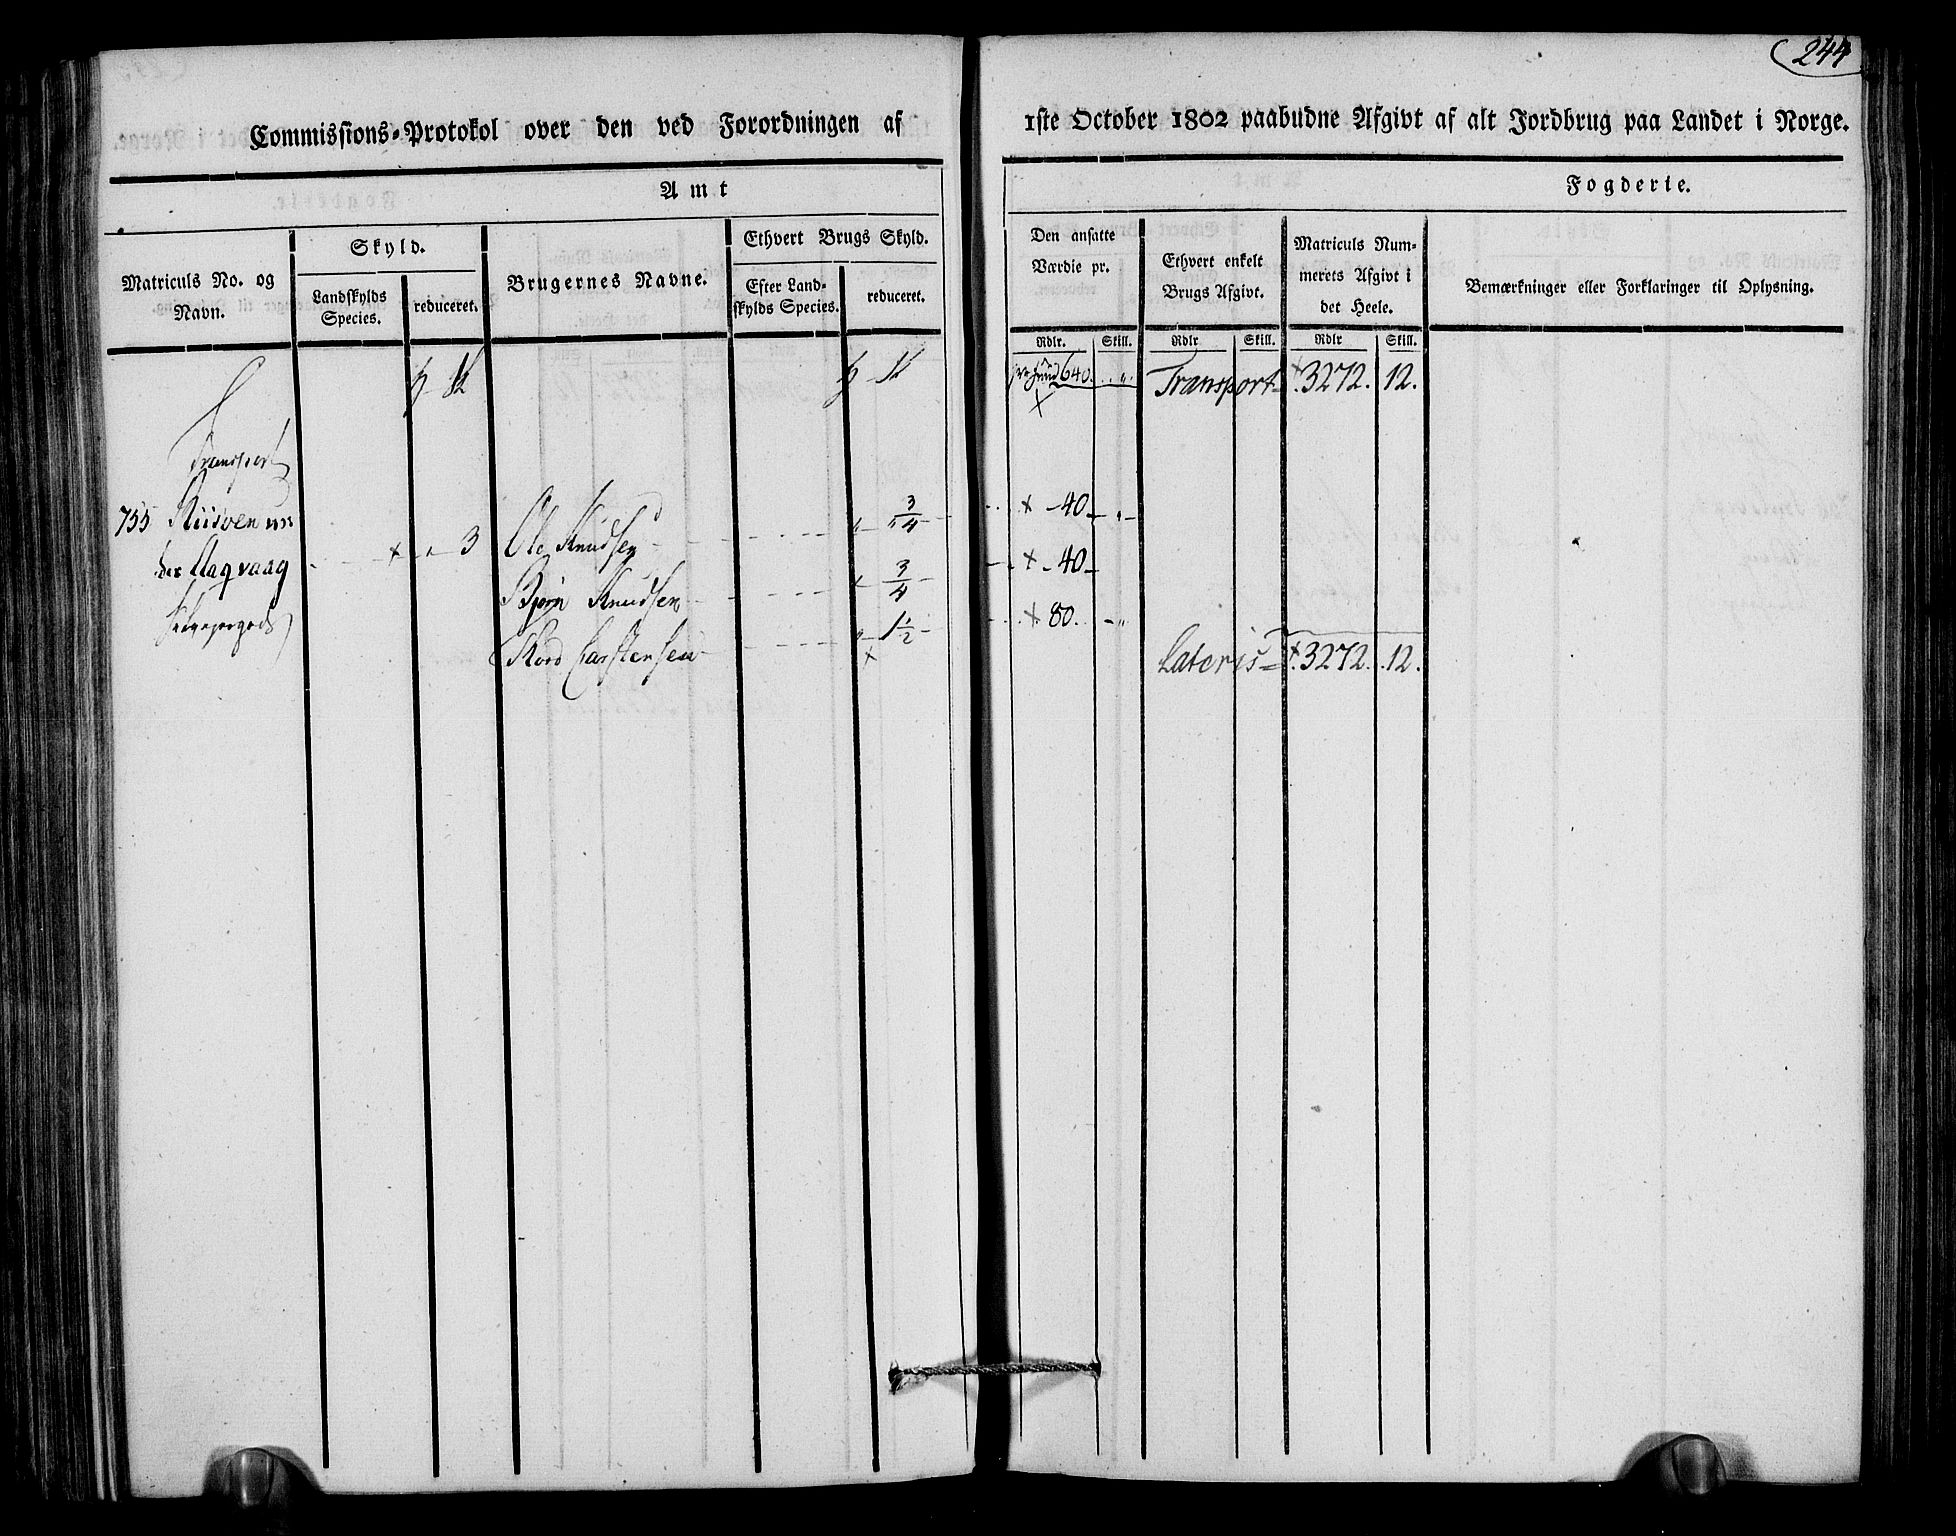 244
Commissions-Protokol over den ved Forordningen af 1ste October 1802 paabudne Afgivt af alt Jordbrug paa Landet i Norge.
Amt
Fogderie.
Matriculs No. og Navn.
Skyld.
Landskylds Species.
reduceret.
Brugernes Navne.
Ethvert Brugs Skyld.
Efter Landskylds Species.
reduceret.
Den ansatte Værdie pr.
Rdlr. Skill.
Ethvert enkelt Brugs Afgivt.
Rdlr Skill.
Matriculs Nummerets Afgivt i det Heele.
Rdlr Skill.
Bemærkninger eller Forklaringer til Oplysning.
640. Transport 3272. 12.
Transport
755 Riisøen un
der Aagvaag 3
Ole Knudsen 3/4 40
Bjørn Knudsen 3/4 40
Kord Carstensen 1 1/2 80.
Lateris 3272. 12.